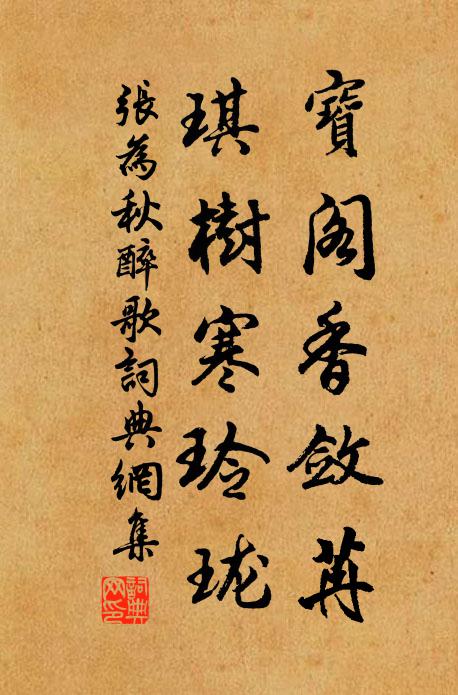 寶阁香斂苒
琪樹寒玲珑
張為秋醉歌詞典網集
詞典网印